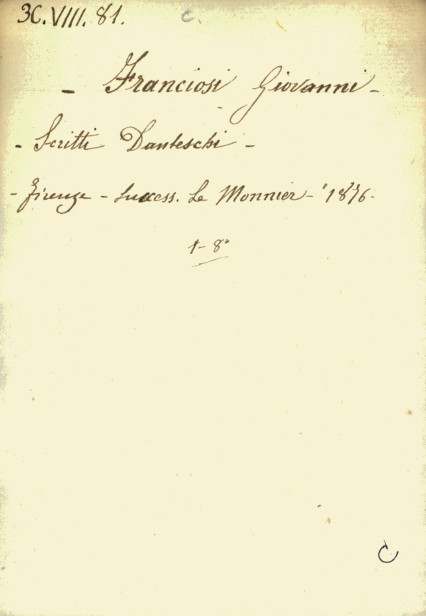 3C.VIII.81. C.
- Franciosi Giovanni -
- Scritti Danteschi -
- Firenze - Success. Le Monnier - 1876 -
1-8°
C